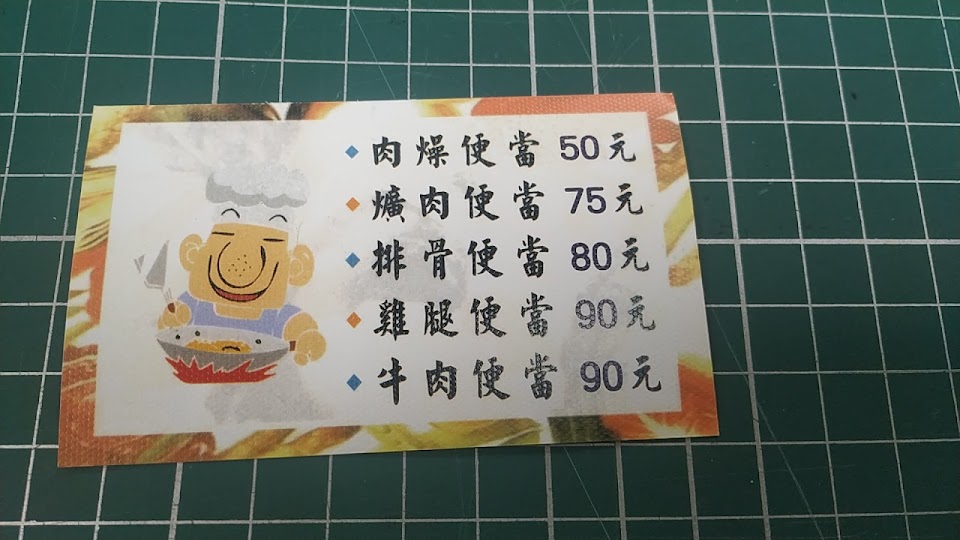 肉燥便當 50元
爌肉便當 75元
排骨便當 80元
雞腿便當 90元
牛肉便當 90元